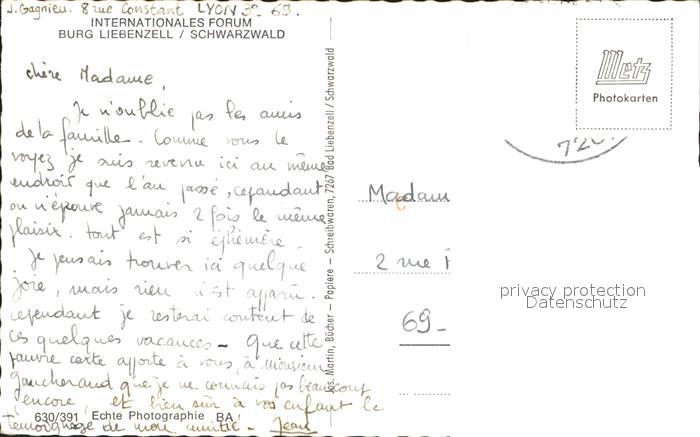 J. Gagnieu. 8 rue Constant LYON 3e 69.
INTERNATIONALES FORUM
BURG LIEBENZELL / SCHWARZWALD
chère Madame,
Je n'oublie pas les amis
de la famille. Comme vous le
voyez je suis revenu ici au même
endroit que l'an passé, cependant
on n'éprouve jamais 2 fois le même
plaisir. tout est si éphémère.
Je pensais trouver ici quelque
joie, mais rien n'est apparu.
cependant je resterai content de
ces quelques vacances - Que cette
pauvre carte apporte à vous, à Monsieur
Gaucherand que je ne connais pas beaucoup
encore, et bien sûr à vos enfant le
témoignage de mon amitié - Jean
630/391 Echte Photographie BA
Jos. Martin, Bücher - Papiere - Schreibwaren, 7267 Bad Liebenzell / Schwarzwald
Metz
Photokarten
726
Madam
2 rue
69-
privacy protection
Datenschutz